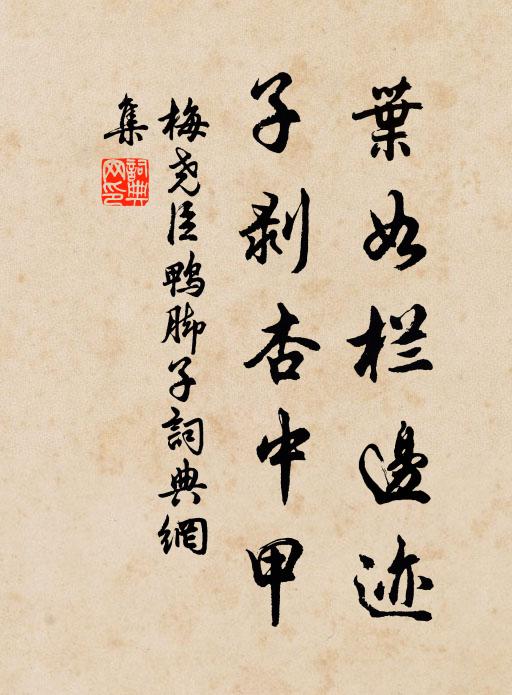 葉如栏邊迹
子剥杏中甲
梅堯臣鴨脚子詞典網
集
詞典
网印